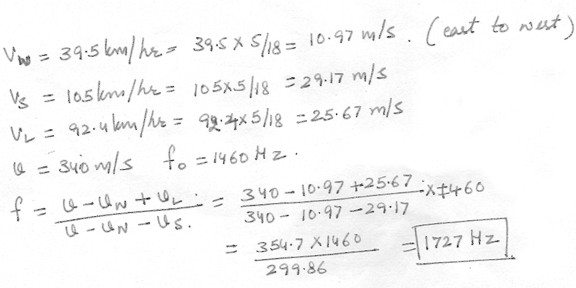 Vw = 39.5 km/hr = 39.5 x 5/18 = 10.97 m/s. (east to west)
Vs = 105 km/hr = 105x5/18 = 29.17 m/s
VL = 92.4 km/hr = 92.4x5/18 = 25.67 m/s
v = 340 m/s fo = 1460 Hz.
f = v - vw + vL. / v - vw - vs. = 340 - 10.97 + 25.67 / 340 - 10.97 - 29.17 x 1460
= 354.7 x 1460 / 299.86 = 1727 Hz